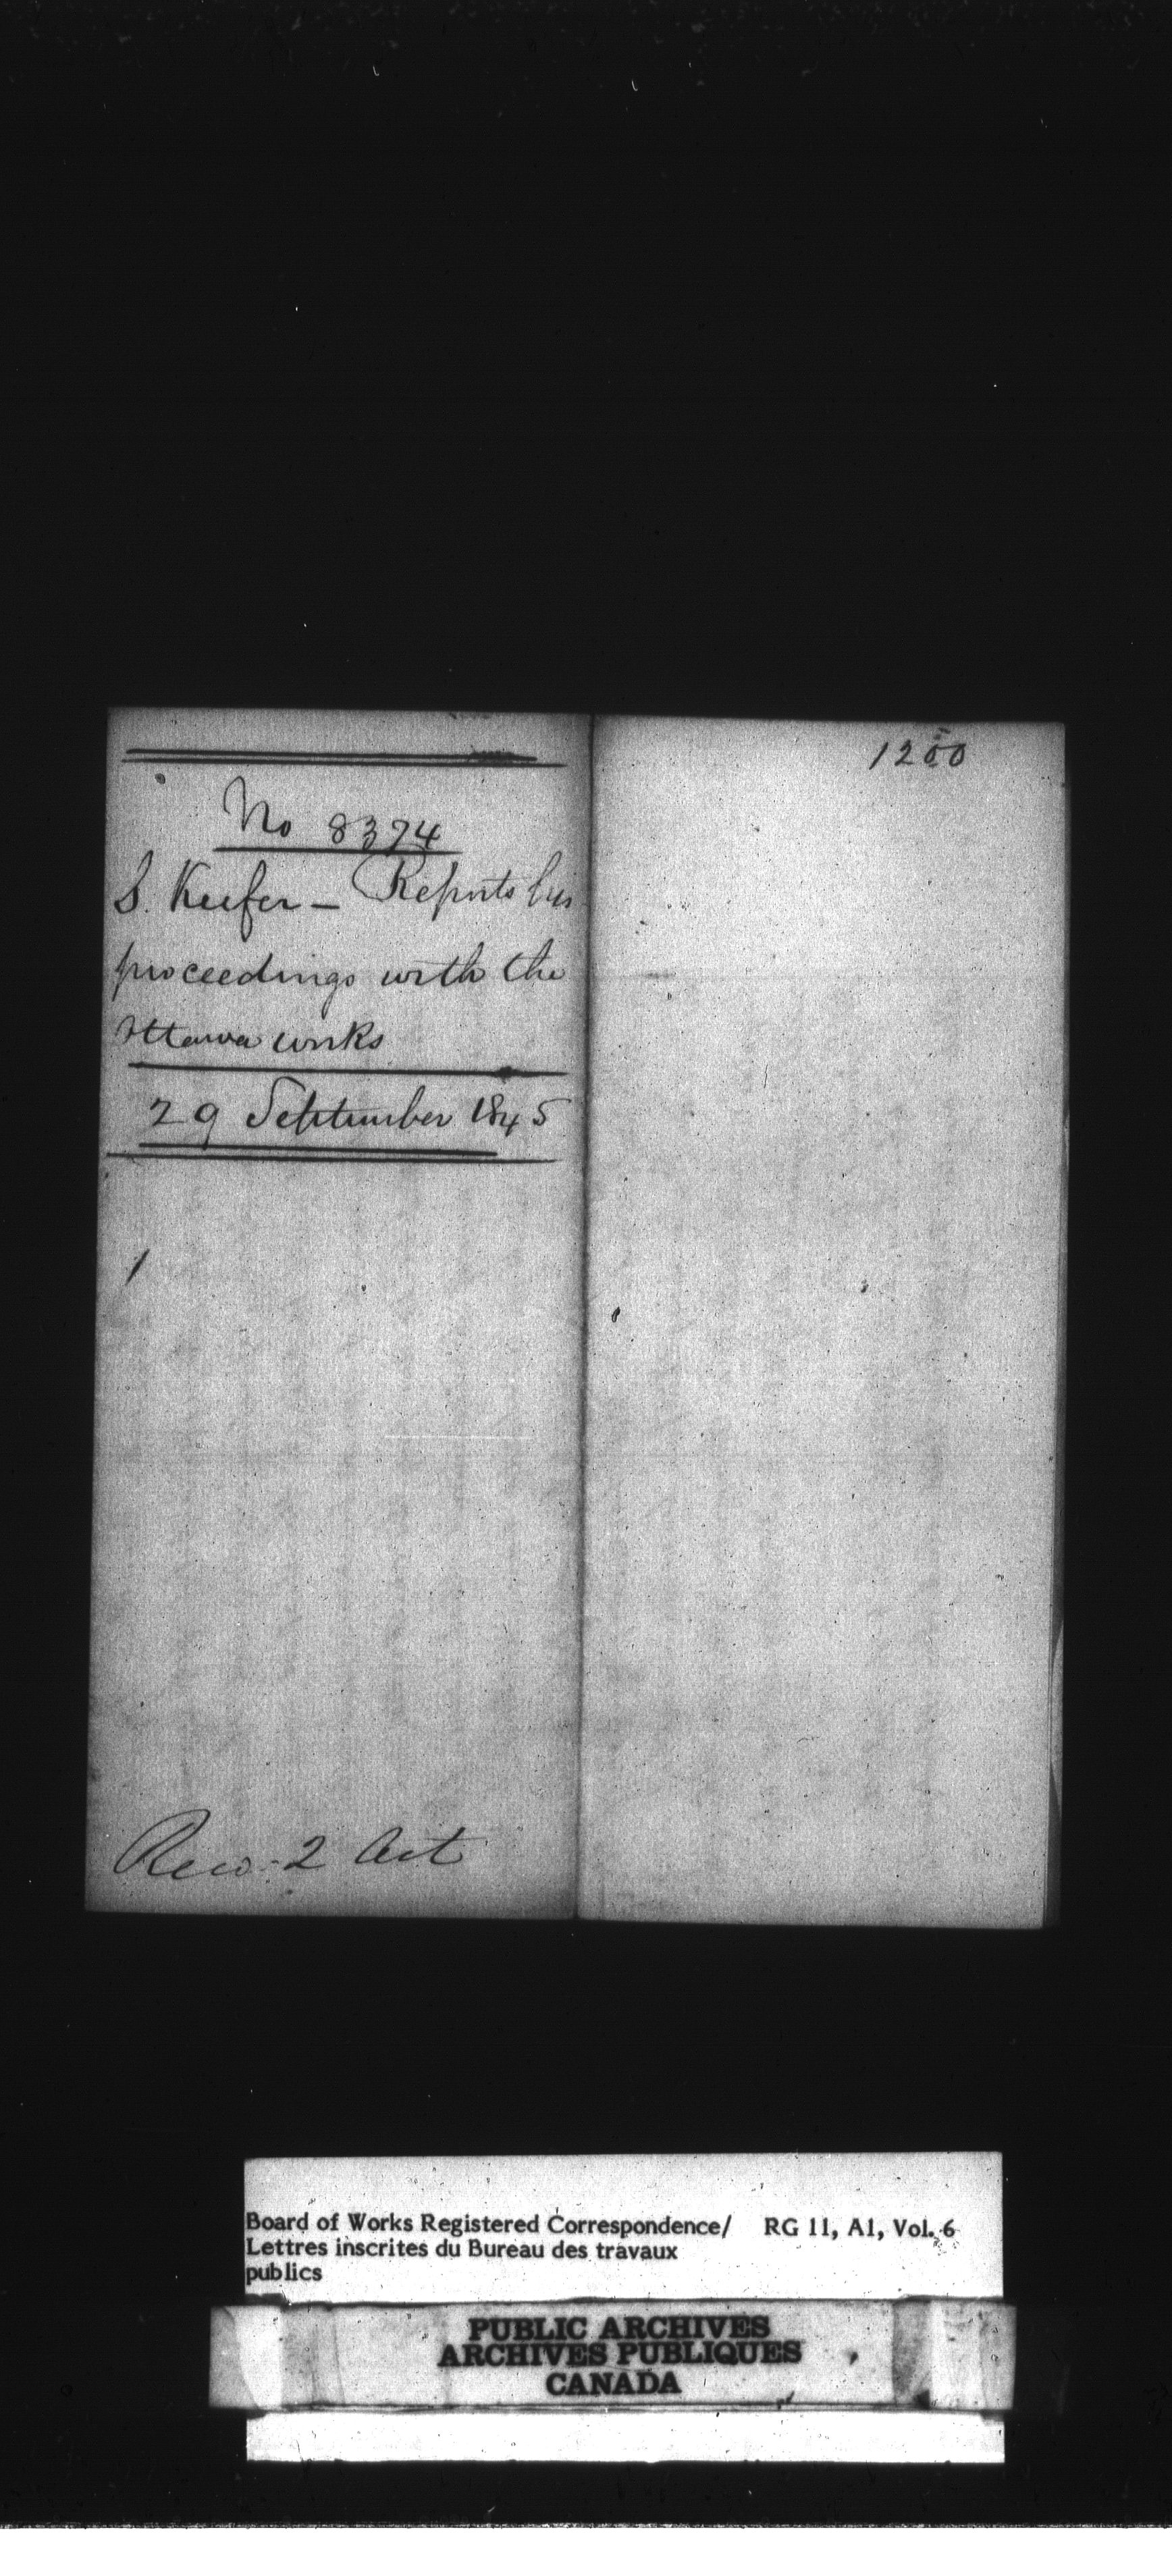 1200
No 8374
S. Keefer - Reports his
proceedings with the
Ottawa works
29 September 1845
1
Rec. 2 Oct
Board of Works Registered Correspondence/ RG 11, A1, Vol. 6
Lettres inscrites du Bureau des travaux
publics
PUBLIC ARCHIVES
ARCHIVES PUBLIQUES
CANADA